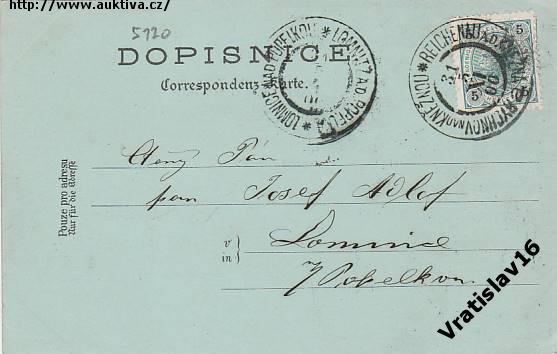 http://www.auktiva.cz/
5120
DOPISNICE.
Correspondenz-Karte.
LOMNICE NAD POPELKOU * LOMNITZ A.D. POPELKA *
REICHENAU A.D. KN. * RYCHNOV NAD KNĚŽNOU *
5
5
Pouze pro adresu
Nur für die Adresse
Ctěný Pán
pan Josef Adlof
v
in
Lomnice
n/Popelkou.
Vratislav16